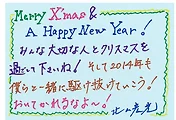 Merry X'mas &
A Happy New Year!
みんな大切な人とクリスマスを
過ごして下さいね! そして2014年も
僕らと一緒に駆け抜けていこう!
おいてかれるなよ〜! 北山宏光